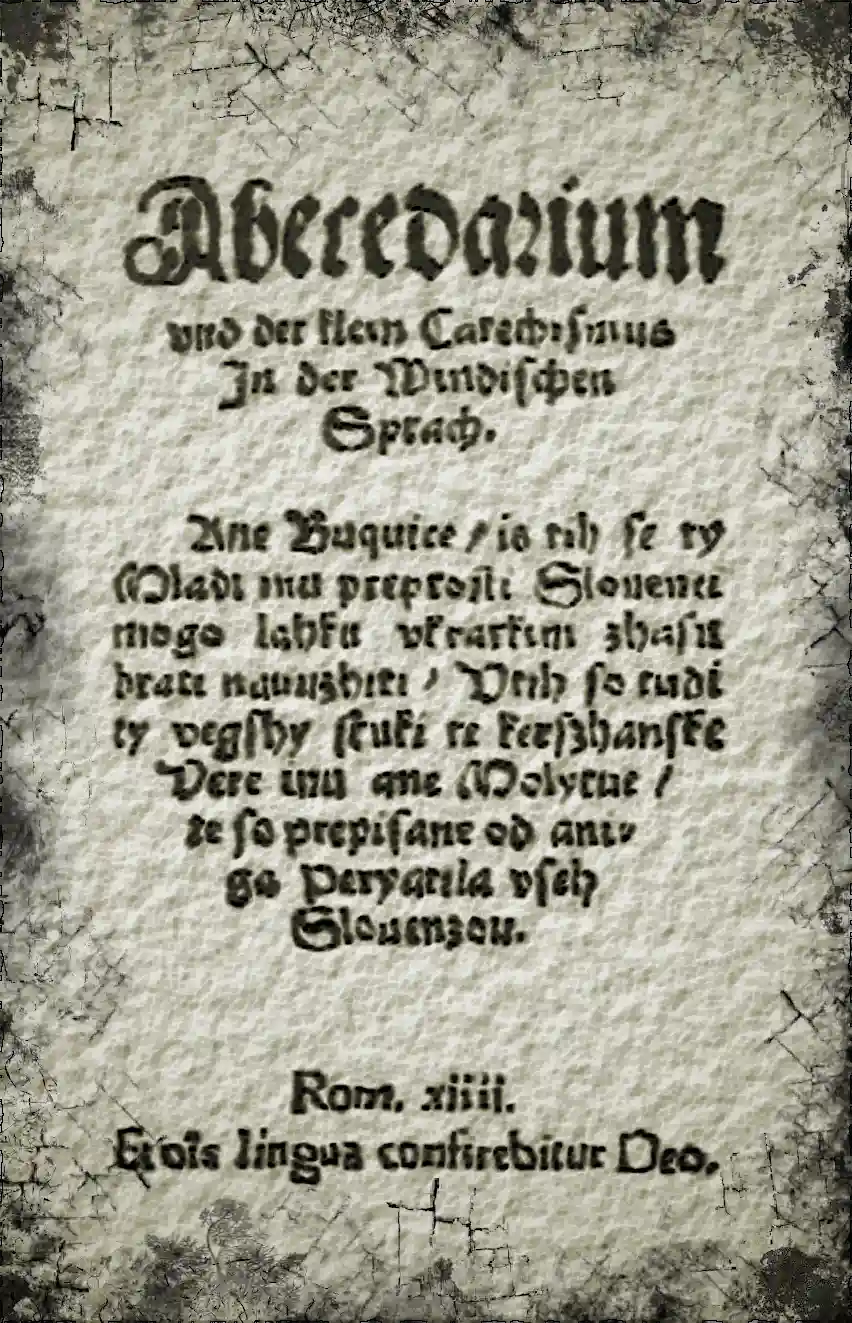 Abecedarium
vnd der klein Catechismus
In der Windischen
Sprach.
Ane Buquice / is tih se ty
Mladi inu preprosti Slouenci
mogo lahku vkratkim zhasu
brati nauuzhiti / Vtih so tudi
ty vegshy stuki te kerszhanske
Vere inu ane Molytue /
te so prepisane od ani-
ga Peryatila vseh
Slouenzou.
Rom. xiiii.
Et ois lingua confitebitur Deo.